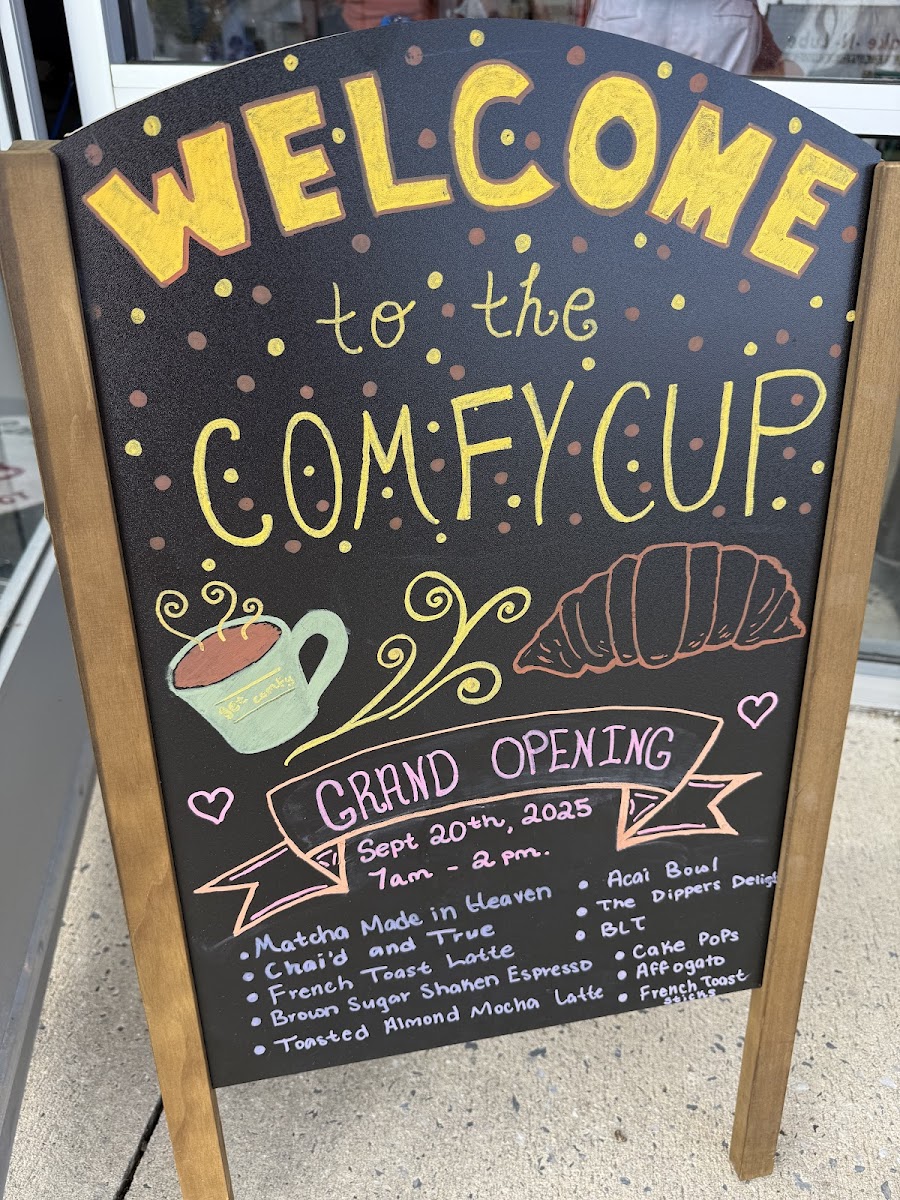 WELCOME
to the
COMFY CUP
get comfy
GRAND OPENING
Sept 20th, 2025
7am - 2pm.
• Matcha Made in Heaven
• Chai'd and True
• French Toast Latte
• Brown Sugar Shaken Espresso
• Toasted Almond Mocha Latte
• Acai Bowl
• The Dippers Delight
• BLT
• Cake Pops
• Affogato
• French Toast
sticks